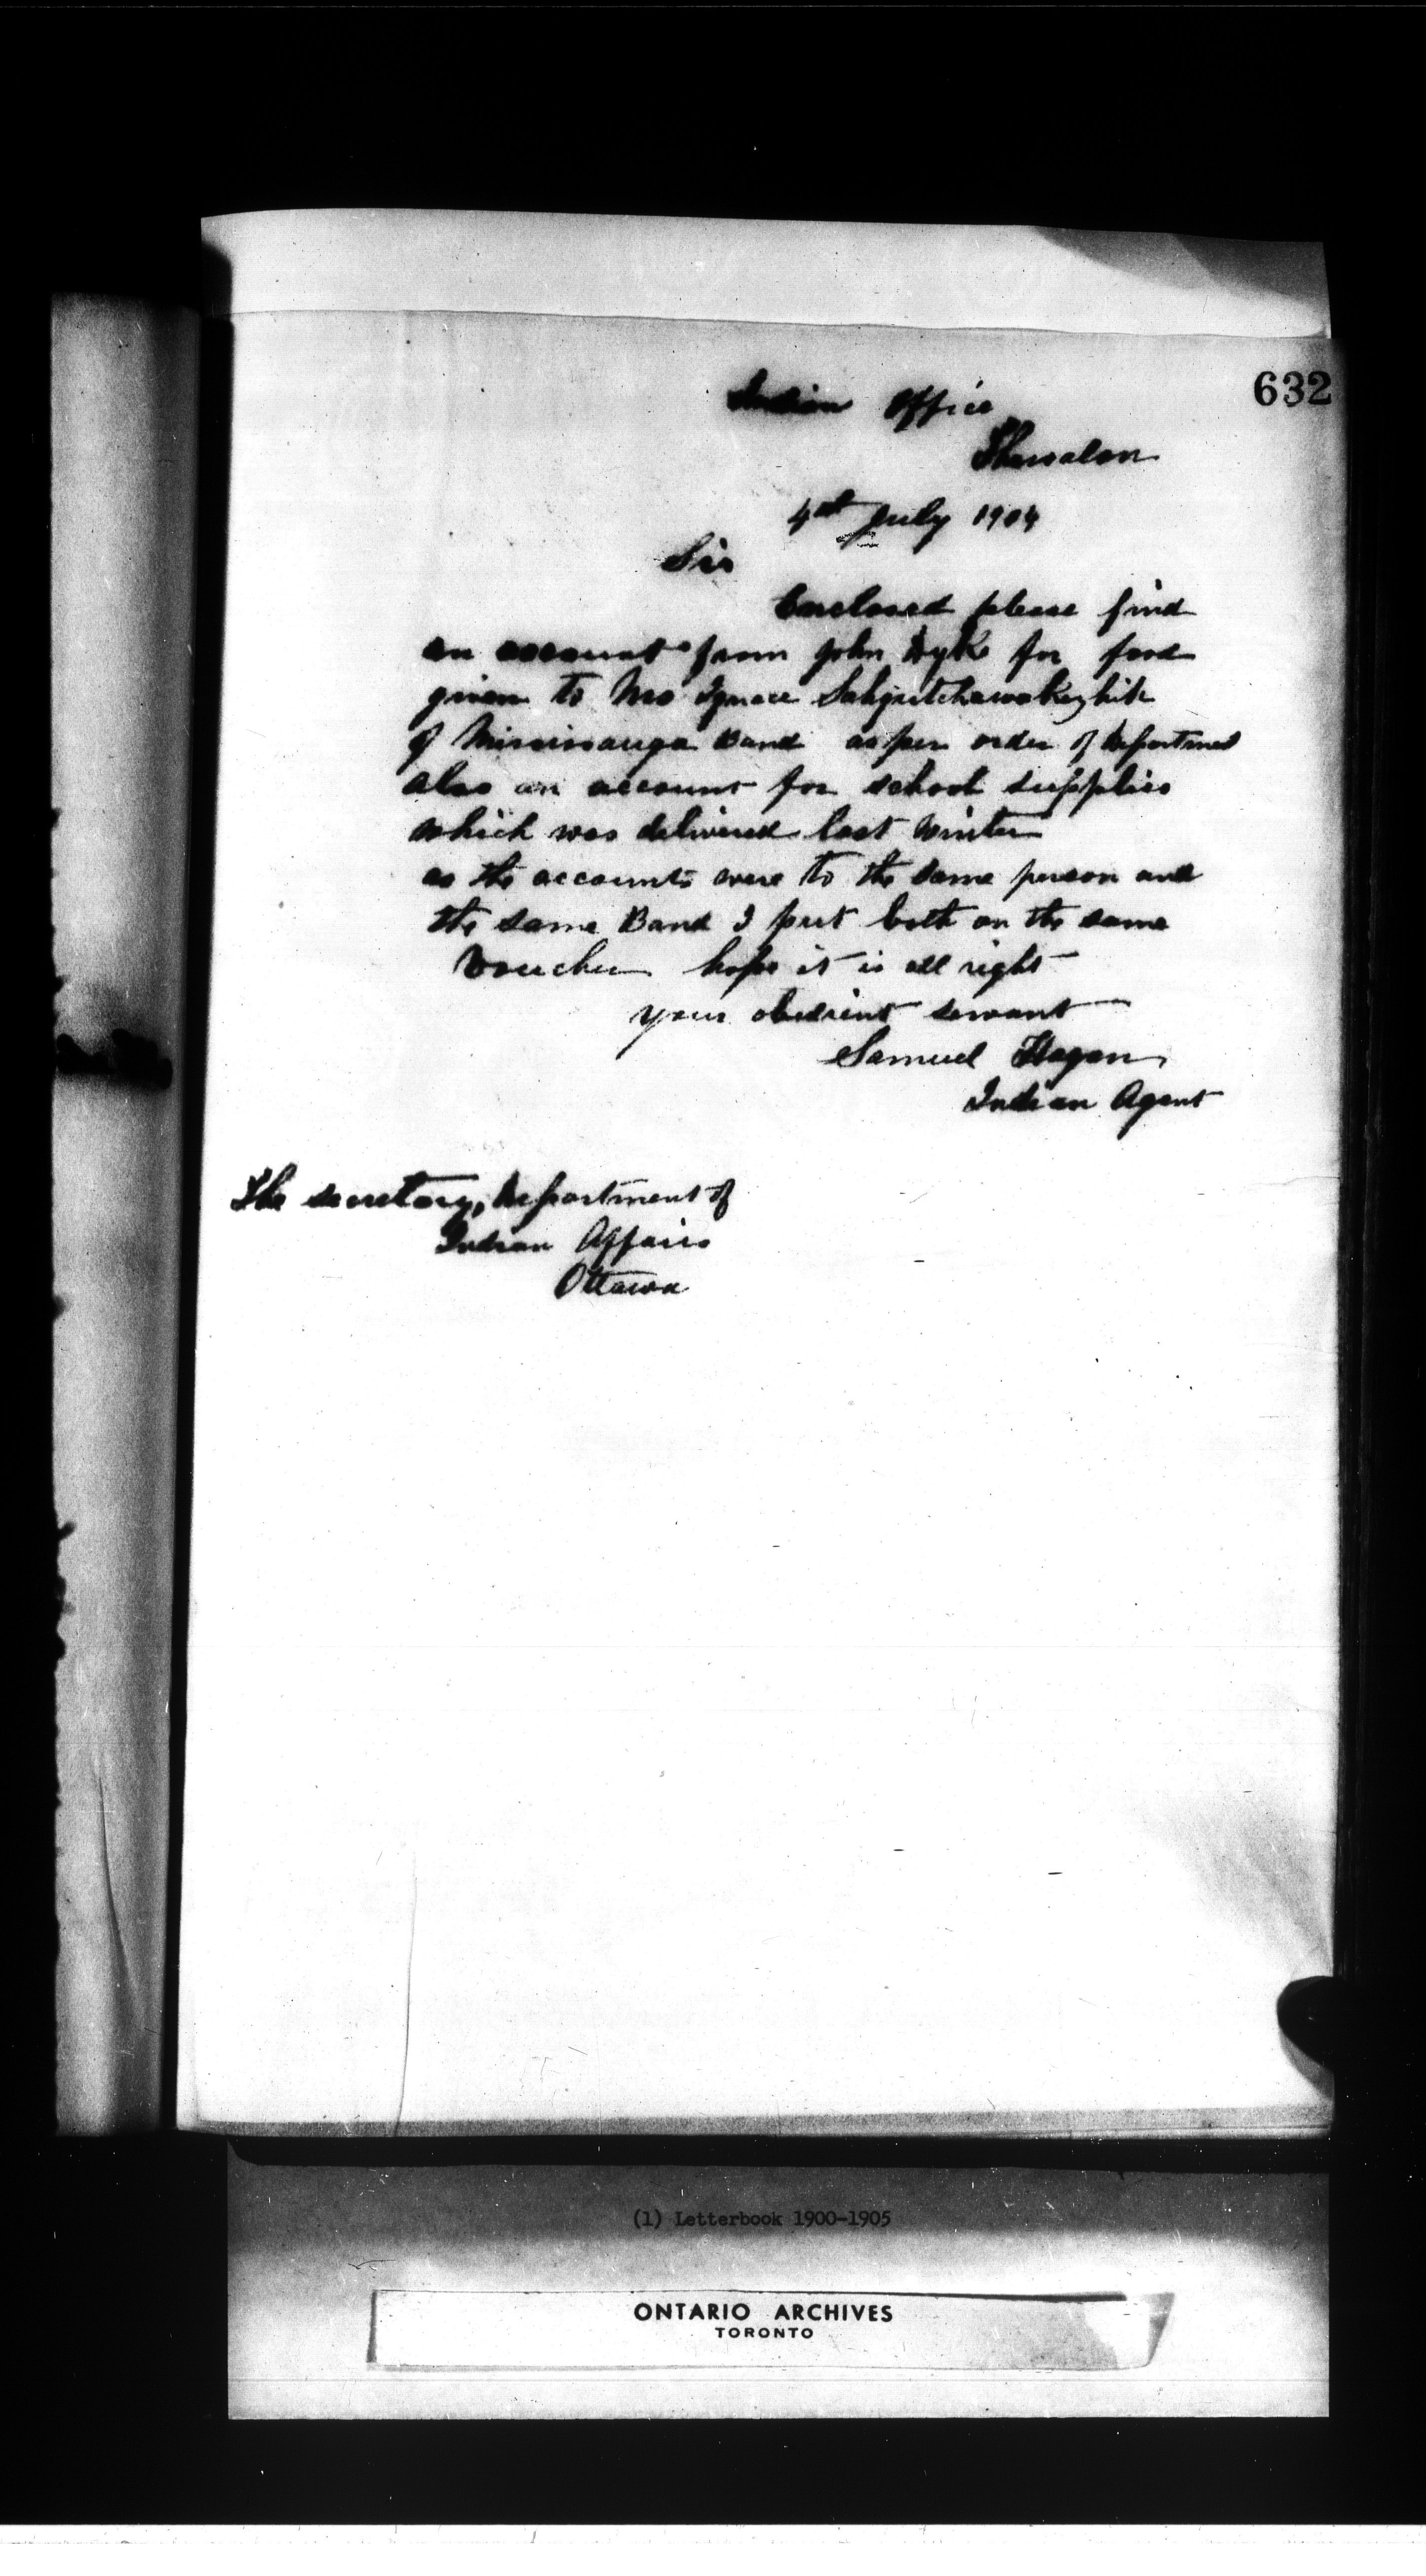 632
Indian Office
Thessalon
4th July 1904
Sir
Enclosed please find
an account from John Dyke for food
given to Mrs Ignace
of Mississauga Band as per order of Department
also an account for school supplies
which was delivered last winter
as the accounts were to the same person and
the same Band I put both on the same
Voucher hope it is all right
your obedient servant
Samuel Hagan
Indian Agent
The secretary, Department of
Indian Affairs
Ottawa
(1) Letterbook 1900-1905
ONTARIO ARCHIVES
TORONTO